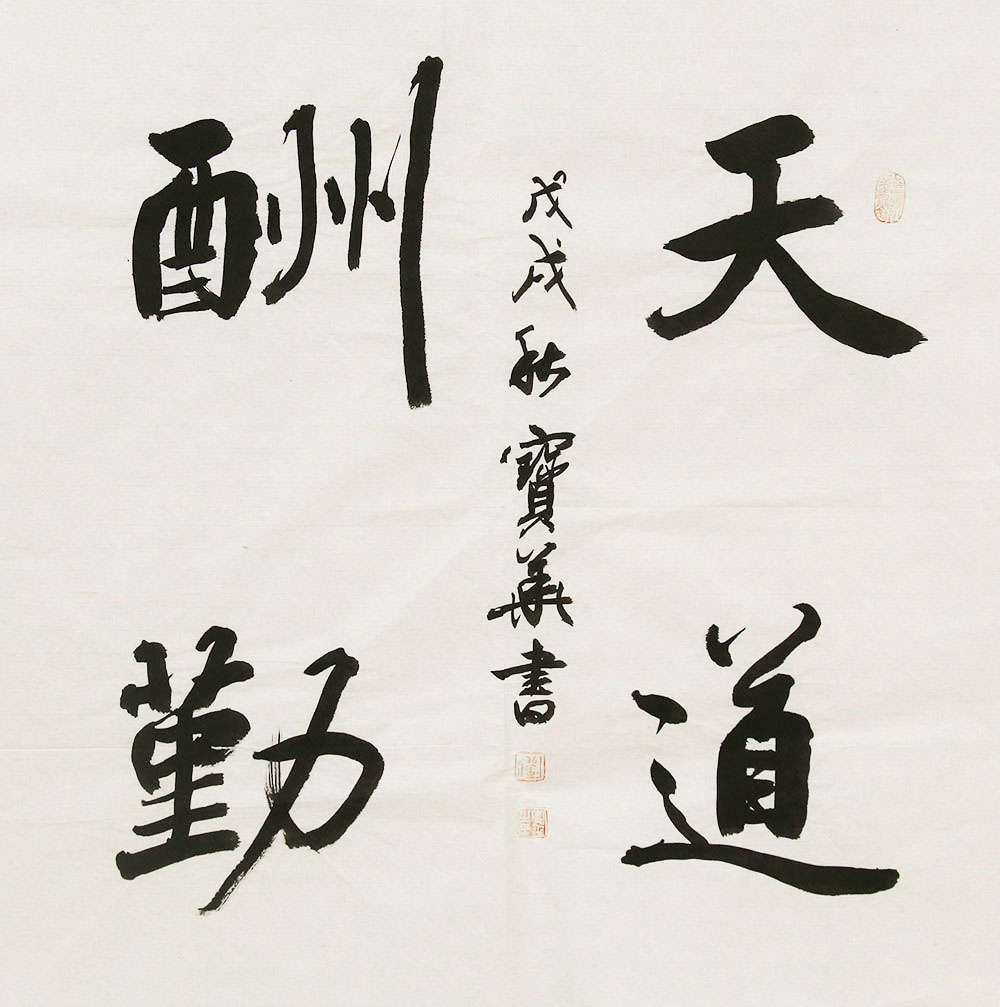 天道
酬勤
戊戌秋寶華書